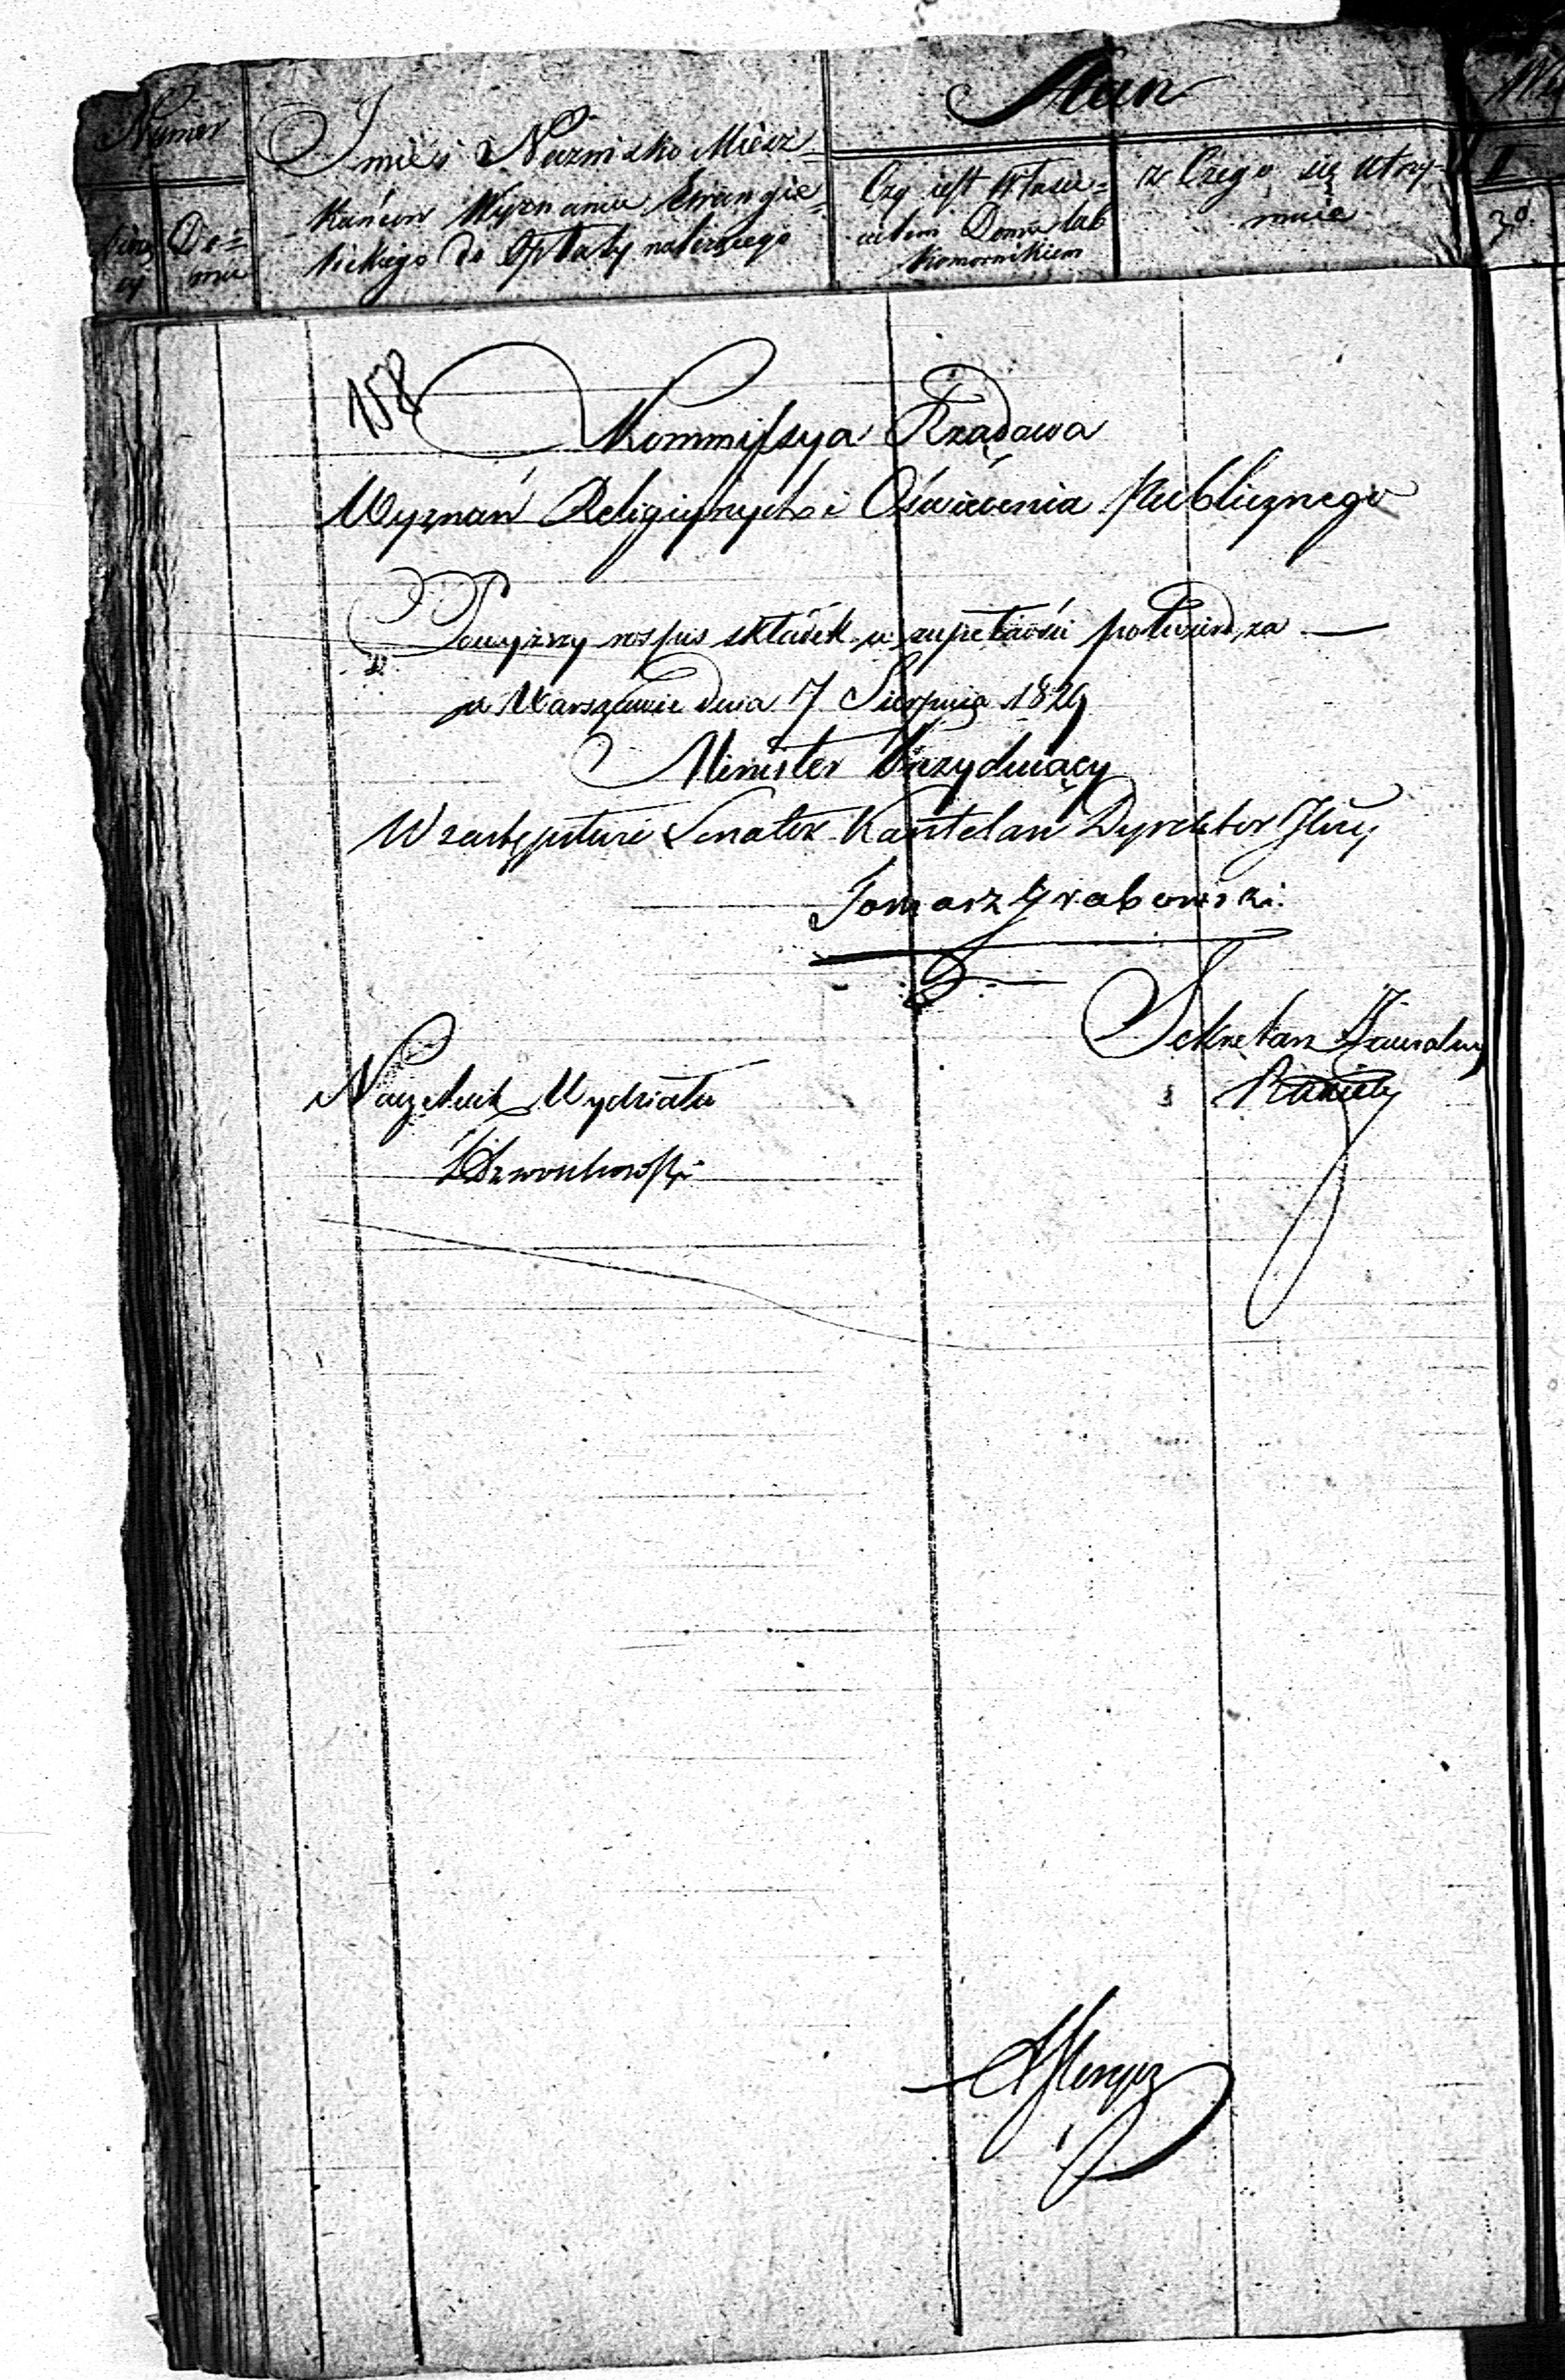 Numer
Imie i Nazwisko Miesz=
kańców Wyznania Ewangie=
lickiego do Opłaty należącego
Do=
mu
Stan
Czy iest Właści=
cielem Domu lub
Komornikiem
z Czego się utrzy=
muie
II
zł.
158
Kommissya Rządowa
Wyznań Religiynych i Oświecenia Publicznego
Powyższy rospis składek w zupełności potwierdza —
w Warszawie dnia 7 Sierpnia 1829
Minister Prezyduiący
W zastępstwie Senator Kasztelan Dyrektor Jlny
Tomasz Grabowski.
Sekretarz Jeneralny
Naczelnik Wydziału